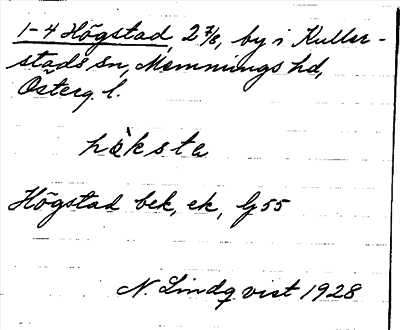 1-4 Högstad, 2 7/8, by i Kuller-
stads sn, Memmings hd,
Österg. l.
hökstа
Högstad bek, ek, G 55
N. Lindqvist 1928